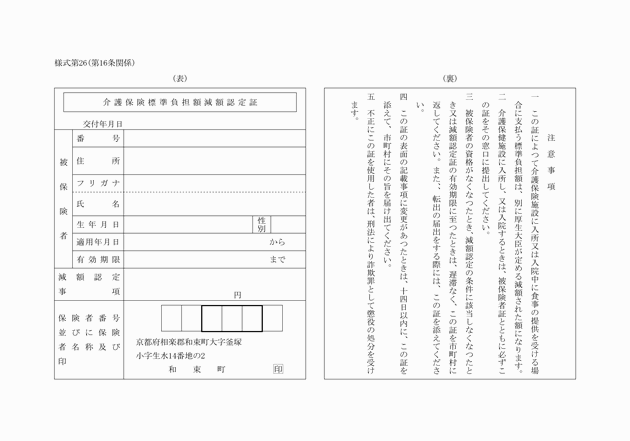 様式第26(第16条関係)
(表)
介護保険標準負担額減額認定証
交付年月日
被保険者
番号
住所
フリガナ
氏名
生年月日
性別
適用年月日
から
有効期限
まで
減額認定
事項
円
保険者番号
並びに保険
者名称及び
印
京都府相楽郡和束町大字釜塚
小字生水14番地の2
和束町
印
(裏)
注意事項
一 この証によつて介護保険施設に入所又は入院中に食事の提供を受ける場
合に支払う標準負担額は、別に厚生大臣が定める減額された額になります。
二 介護保健施設に入所し、又は入院するときは、被保険者証とともに必ずこ
の証をその窓口に提出してください。
三 被保険者の資格がなくなつたとき、減額認定の条件に該当しなくなつたと
き又は減額認定証の有効期限に至つたときは、遅滞なく、この証を市町村に
返してください。また、転出の届出をする際には、この証を添えてくださ
い。
四 この証の表面の記載事項に変更があつたときは、十四日以内に、この証を
添えて、市町村にその旨を届け出てください。
五 不正にこの証を使用した者は、刑法により詐欺罪として懲役の処分を受け
ます。